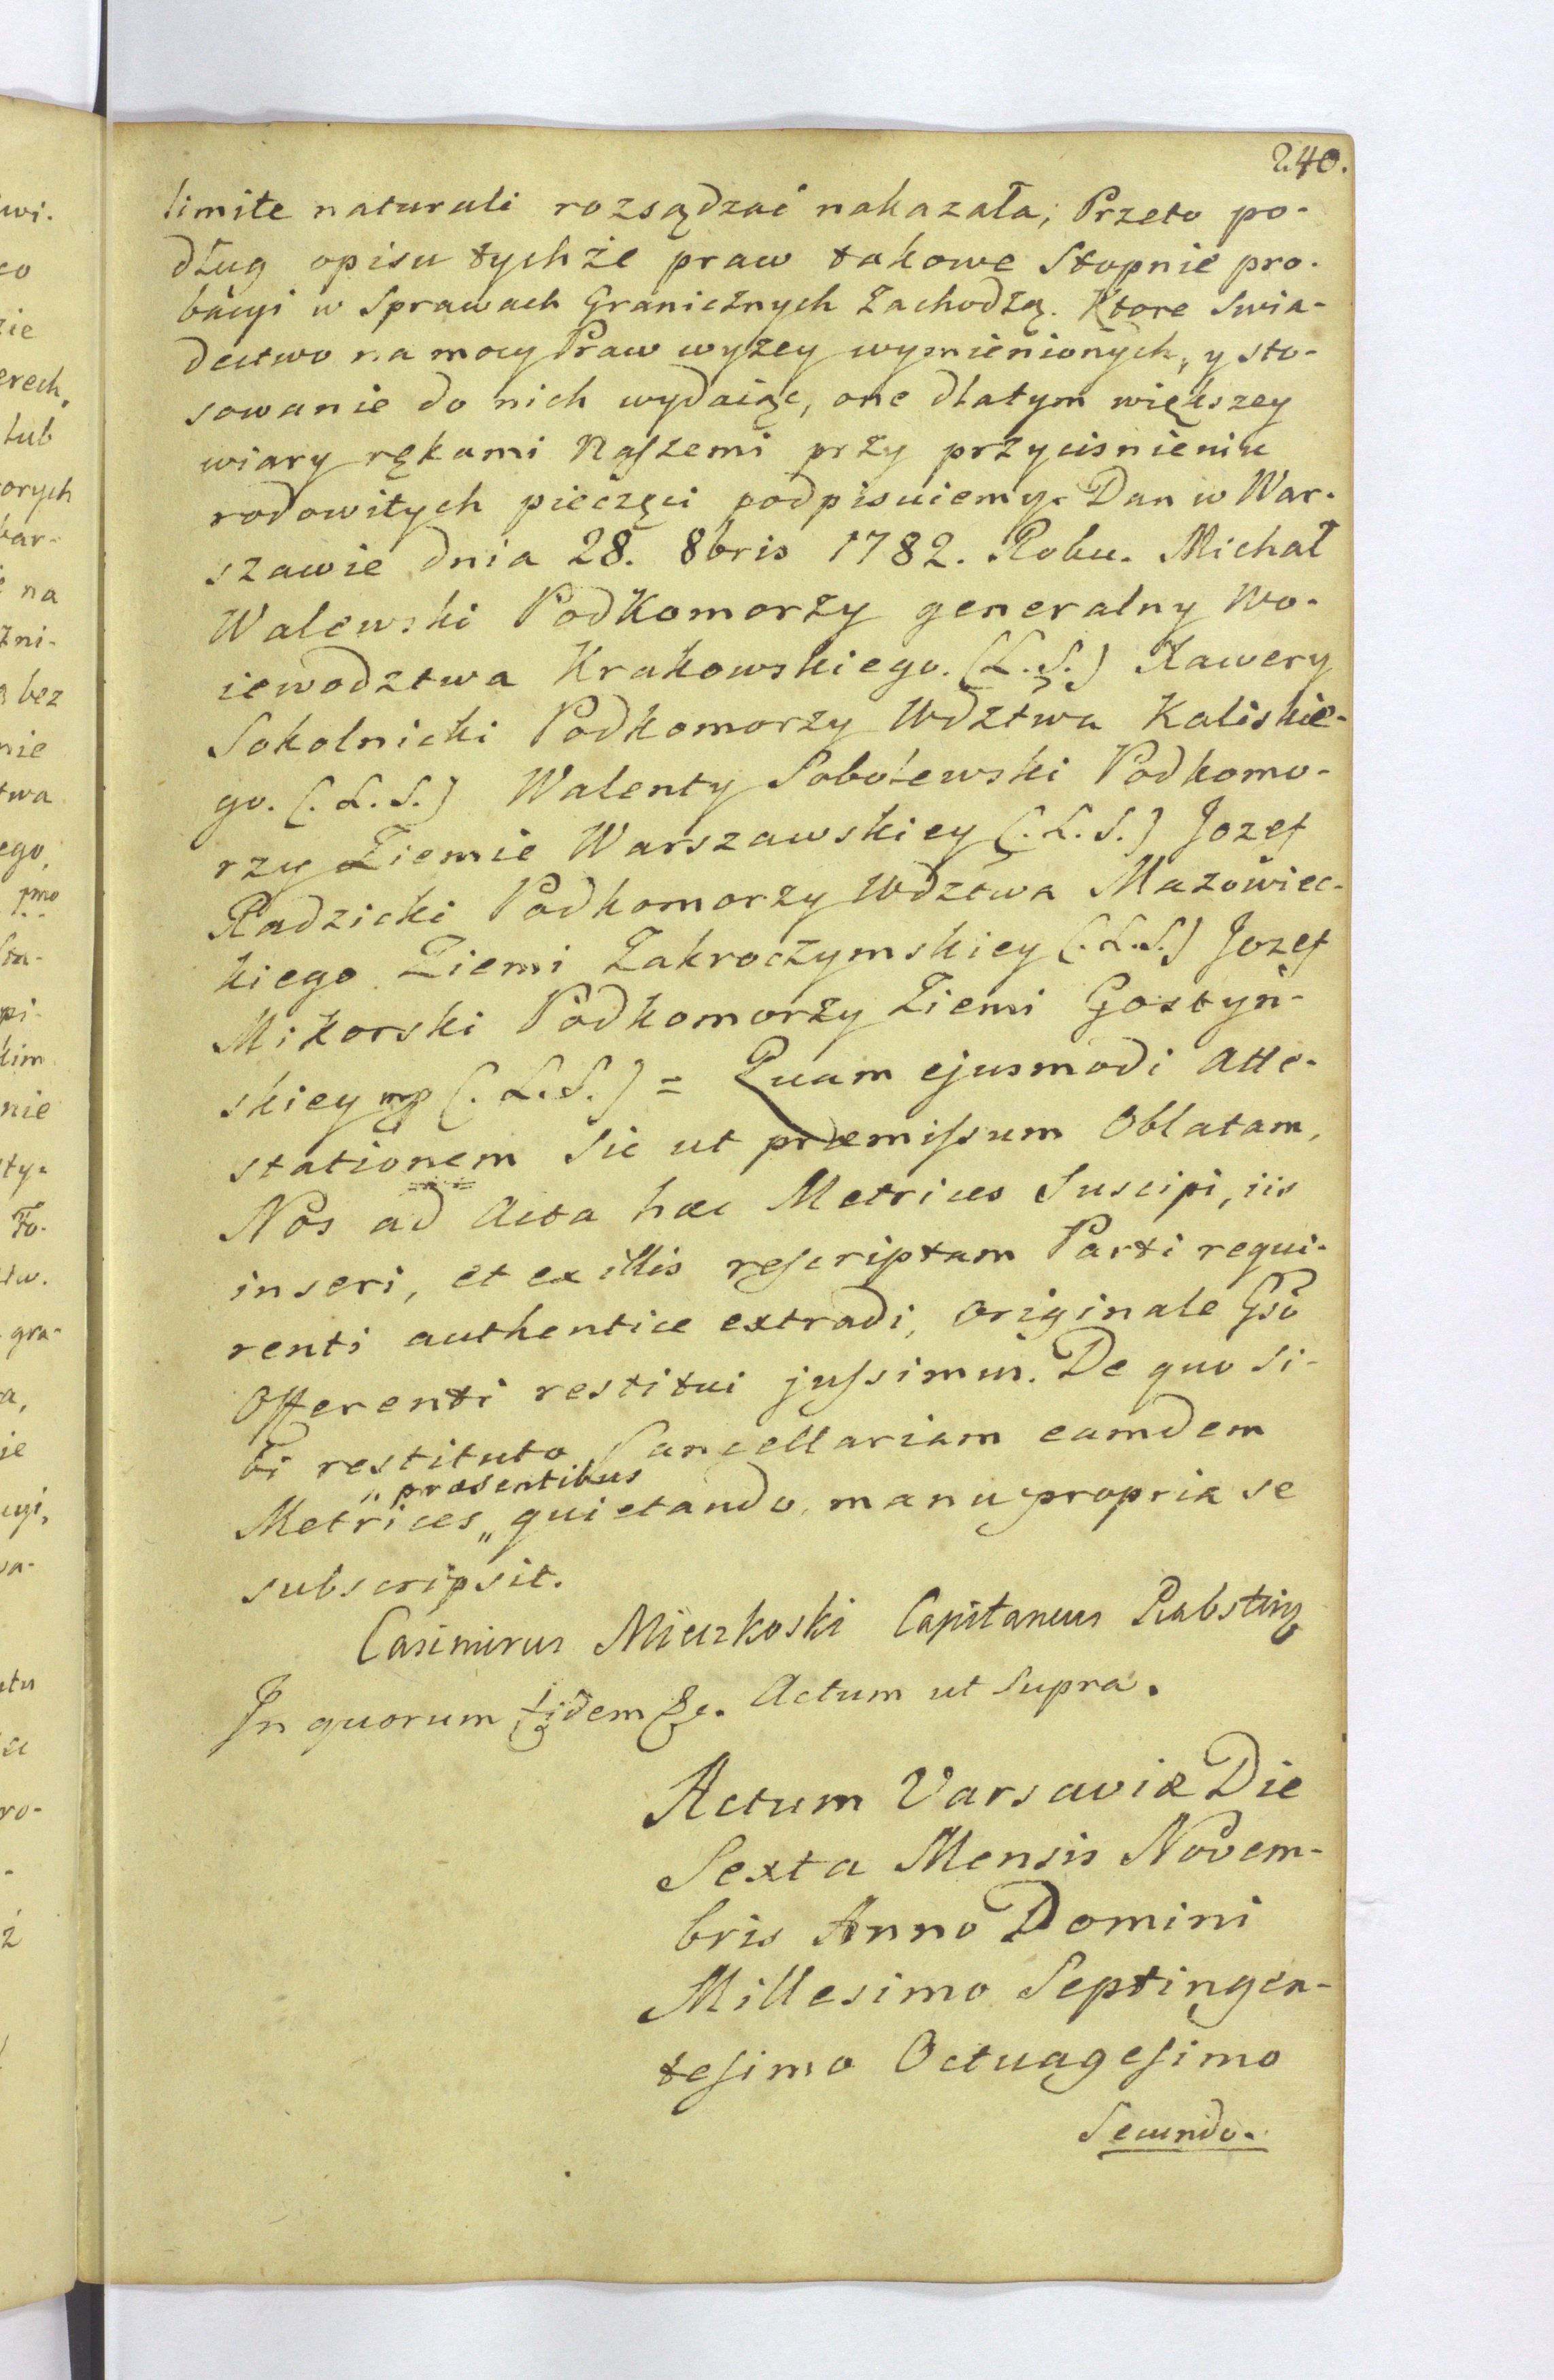 240.
limite naturali rozsądzać nakazała; Przeto po-
dług opisu tychże praw takowe Stopnie pro-
bacyi w Sprawach Granicznych zachodzą. Ktore Swia-
dectwo na mocy Praw wyżey wymienionych, y sto-
sowanie do nich wydaiąc, one dlatym większey
wiary rękami Naszemi przy przycisnieniu
rodowitych pieczęci podpisuiemy. Dan w War-
szawie dnia 28. 8bris 1782. Roku. Michał
Walewski PodKomorzy generalny Wo-
iewodztwa Krakowskiego. (L.S.) Xawery
Sokolnicki Podkomorzy Wdztwa Kaliskie-
go. (.L.S.) Walenty Sobolewski Podkomo-
rzy Ziemie Warszawskiey (.L.S.) Jozef
Radzicki Podkomorzy Wdztwa Mazowiec-
kiego Ziemi Zakroczymskiey (.L.S.) Jozef
Mikorski Podkomorzy Ziemi Gostyń-
skiey mp (.L.S.) = Quam ejusmodi Atte-
stationem Sic ut præmissum Oblatam,
Nos ad Acta hæc Metrices Suscipi, iis
inseri, et ex illis rescriptam Parti requi-
renti authentice extradi, originale Gso
Offerenti restitui jussimus. De quo Si-
bi restituto Cancellariam eamdem
„ præsentibus
Metrices „ quietando, manu propria se
subscripsit.
Casimirus Mieczkoski Capitaneus Rabstin
In quorum fidem &c. Actum ut Supra.
Actum Varsaviæ Die
Sexta Mensis Novem-
bris Anno Domini
Millesimo Septingen-
tesimo Octuagesimo
Secundo.
wi.
co
zie
erech,
lub
orych
kar-
na
żni-
bez
nie
twa
ego,
pmo
pi-
kim
nie
sty-
gra-
a,
ie
cyi,
wa-
ro-